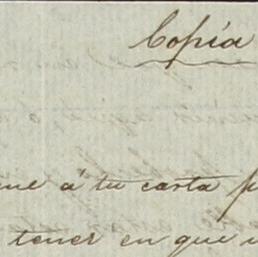 Copia
á tu carta
tener en que